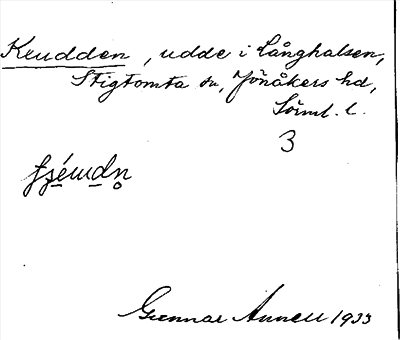 Keudden, udde i Långhalsen,
Stigtomta sn, Jönåkers hd,
Sörml. l.
3
Gunnar Annell 1933